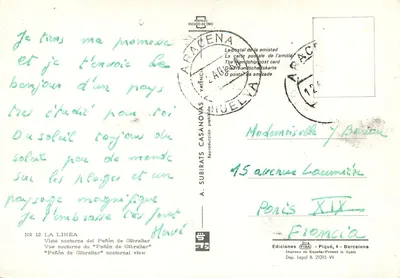 Je tiens ma promesse
et je t'envoie le
bonjour d'un pays
très étudié pour toi
Du soleil toujours du
soleil peu de monde
sur les plages et un
paysage magnifique
je t'embrasse très fort
Hervé
Nº 12 LA LINEA
Vista nocturna del Peñón de Gibraltar
Vue nocturne du "Peñón de Gibraltar"
"Peñón de Gibraltar" nocturnal view
A. SUBIRATS CASANOVAS
VALENCIA
Reproducción prohibida
ARACENA
HUELVA
La postal de la amistad
La carte postale de l'amitié
The friendship post card
O postal da amizade
ARACENA
Mademoiselle Y.
15 avenue
Paris XIX
Francia
Ediciones
Piqué, 4 - Barcelona
Dep. legal B.